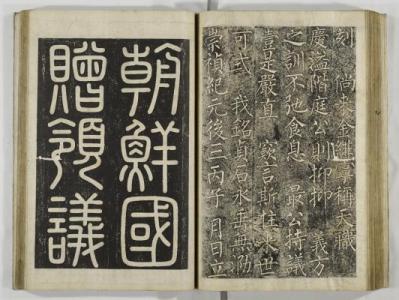 刻 尚 金 稱天職
慶溢階庭公則抑抑 義方
之訓不弛食息 最公持議
是嚴直 家言斯在來世
可式 我銘貞石永垂無泐
崇禎紀元後三丙子 月日立
朝鮮國
贈領議